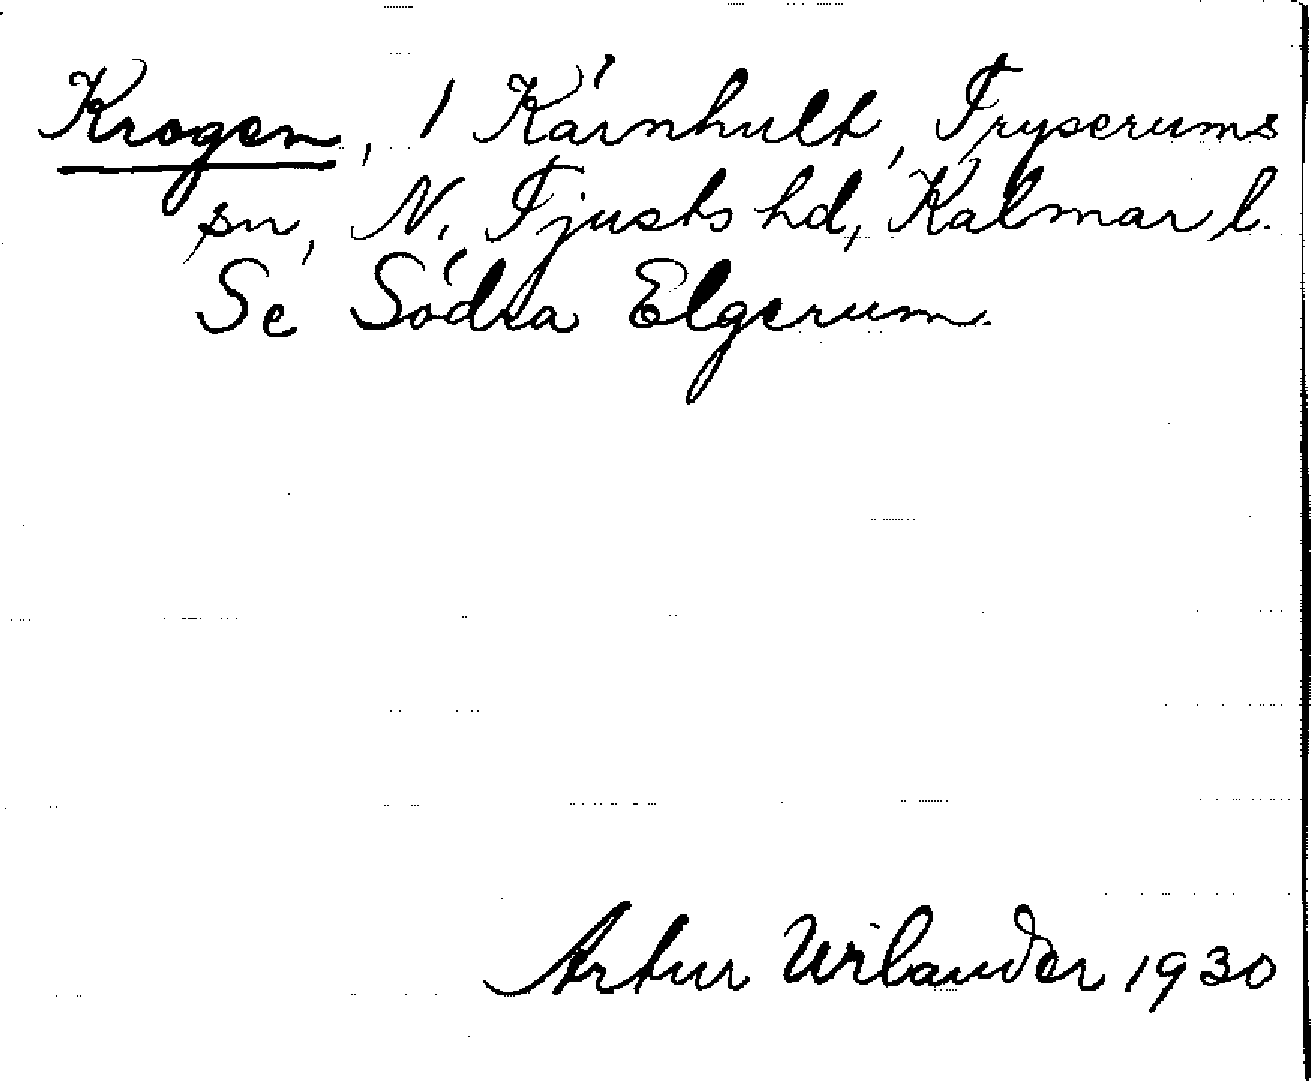 Krogen, 1 Kärnhult, Tryserums
sn, N. Tjusts hd, Kalmar l.
Se Södra Elgerum.
Artur Wilander 1930